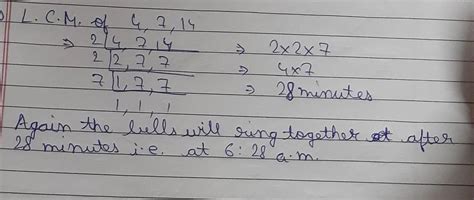 L.C.M. of 4, 7, 14
⇒ 2 | 4, 7, 14 ⇒ 2×2×7
2 | 2, 7, 7 ⇒ 4×7
7 | 1, 7, 7 ⇒ 28 minutes
1, 1, 1
Again the bells will ring together at after
28 minutes i.e. at 6:28 a.m.